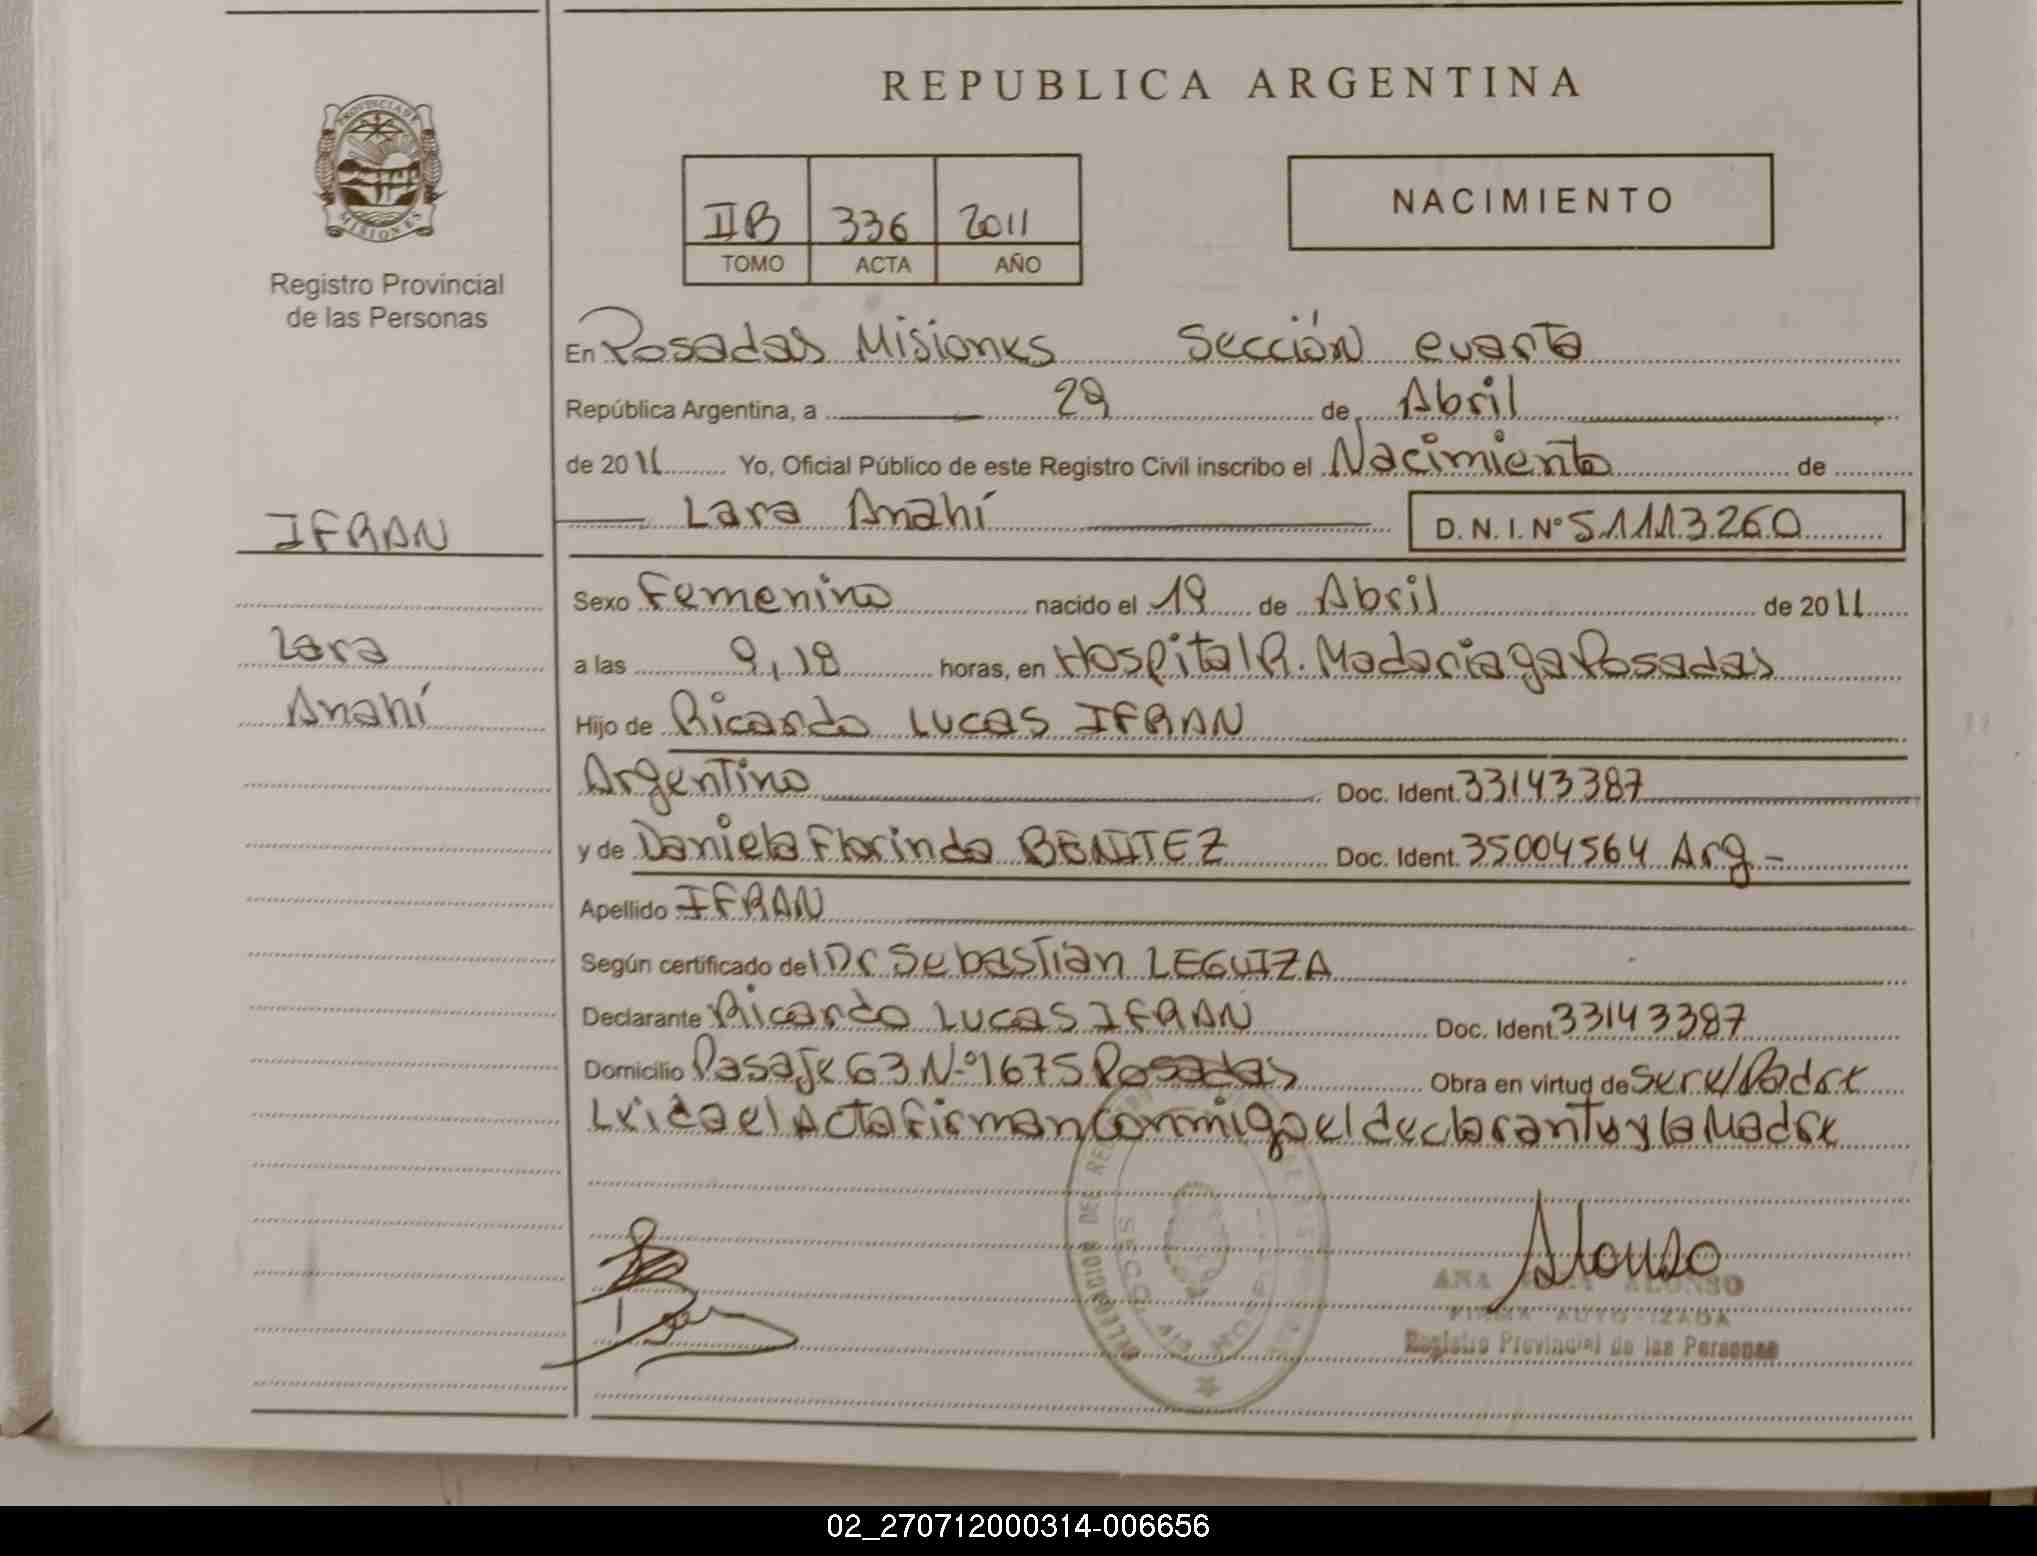 REPUBLICA ARGENTINA
PROVINCIA DE
MISIONES
Registro Provincial
de las Personas
IIB 336 2011
TOMO ACTA AÑO
NACIMIENTO
En Posadas Misiones Sección cuarta
República Argentina, a 29 de Abril
de 2011 Yo, Oficial Público de este Registro Civil inscribo el Nacimiento de
Lara Anahí D.N.I. Nº 51113260
IFRAN
Lara
Anahí
Sexo Femenino nacido el 19 de Abril de 2011
a las 9,18 horas, en Hospital R. Madariaga Posadas
Hijo de Ricardo Lucas IFRAN
Argentino Doc. Ident. 33143387
y de Daniela Florinda BENITEZ Doc. Ident. 35004564 Arg-
Apellido IFRAN
Según certificado del Dr Sebastián LEGUIZA
Declarante Ricardo Lucas IFRAN Doc. Ident. 33143387
Domicilio Pasaje 63 Nº 1675 Posadas Obra en virtud de ser el Padre
Leida el Acta firman conmigo el declarante y la Madre
Alonso
ANA ALONSO
FIRMA AUTORIZADA
Registro Provincial de las Personas
02_270712000314-006656